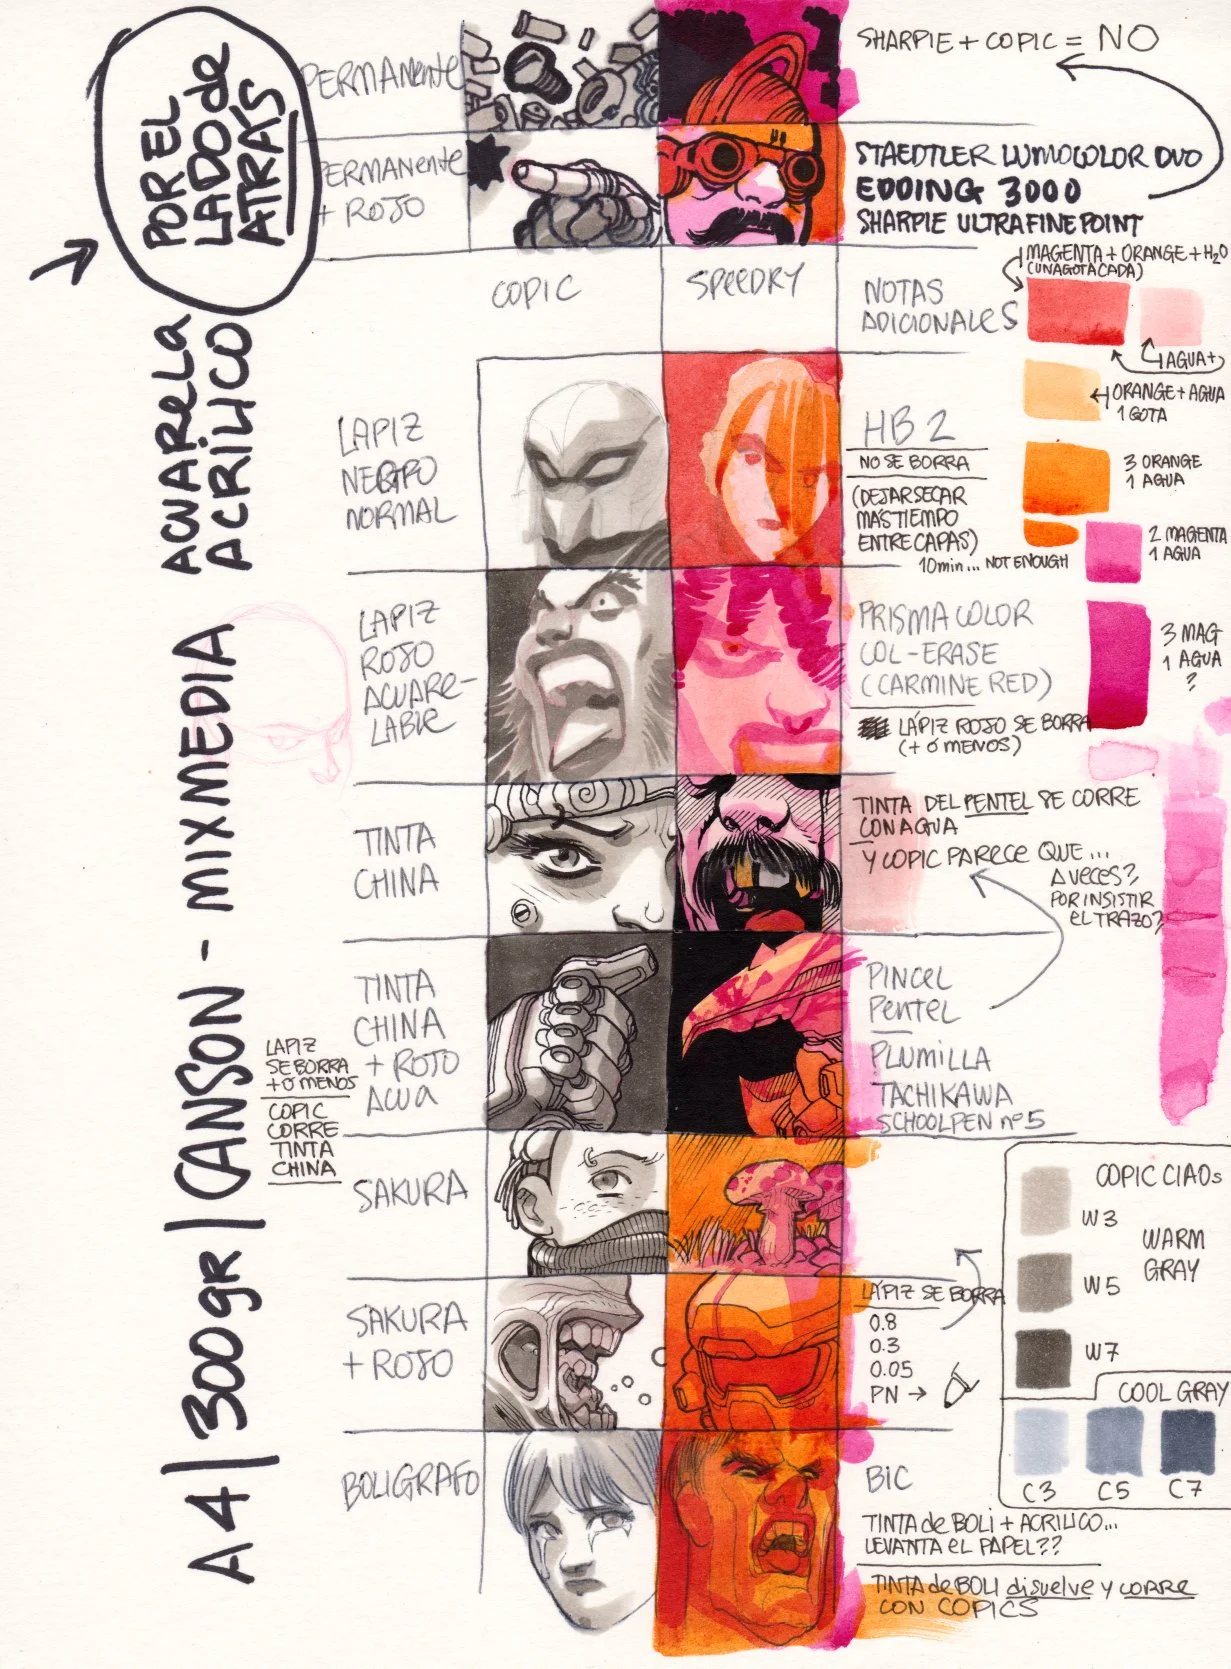 POR EL
LADO de
ATRAS
PERMANente
SHARPIE + COPIC = NO
PERMANente
+ ROJO
STAEDTLER LUMOCOLOR DUO
EDDING 3000
SHARPIE ULTRA FINE POINT
COPIC
SPEEDRY
NOTAS
ADICIONALES
MAGENTA + ORANGE + H2O
(UNA GOTA CADA)
AGUA+
ORANGE + AGUA
1 GOTA
3 ORANGE
1 AGUA
2 MAGENTA
1 AGUA
3 MAG
1 AGUA
?
ACUARELLA
ACRILICO
A4 | 300gR | CANSON - MIXMEDIA
LAPIZ
NEGRO
NORMAL
HB 2
NO SE BORRA
(DEJAR SECAR
MAS TIEMPO
ENTRE CAPAS)
10min... NOT ENOUGH
LAPIZ
ROJO
ACUARE-
LABLE
PRISMA COLOR
COL-ERASE
(CARMINE RED)
LÁPIZ ROJO SE BORRA
(+ Ó MENOS)
TINTA
CHINA
TINTA DEL PENTEL SE CORRE
CON AGUA
Y COPIC PARECE QUE...
A VECES?,
POR INSISTIR
EL TRAZO?
TINTA
CHINA
+ ROJO
ACUA
PINCEL
PenTeL
PLUMILLA
TACHIKAWA
SCHOOLPEN nº5
LAPIZ
SE BORRA
+ O MENOS
COPIC
CORRE
TINTA
CHINA
SAKURA
SAKURA
+ ROJO
LÁPIZ SE BORRA
0.8
0.3
0.05
PN →
COPIC CIAOs
W3
WARM
GRAY
W5
W7
COOL GRAY
C3
C5
C7
BOLIGRAFO
BIC
TINTA de BOLI + ACRILICO...
LEVANTA EL PAPEL??
TINTA de BOLI disuelve y corre
CON COPICS